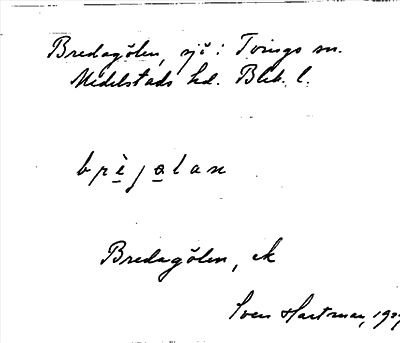 Bredagölen, sjö i Tvings sn.
Medelstads hd. Blek. l.
brèjalan
Bredagölen, ek
Sven Hartman,